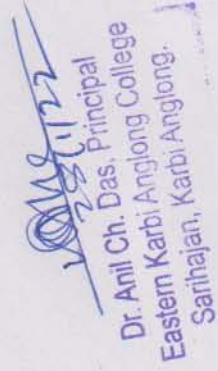 28/1/22
Dr. Anil Ch. Das, Principal
Eastern Karbi Anglong College
Sarihajan, Karbi Anglong.